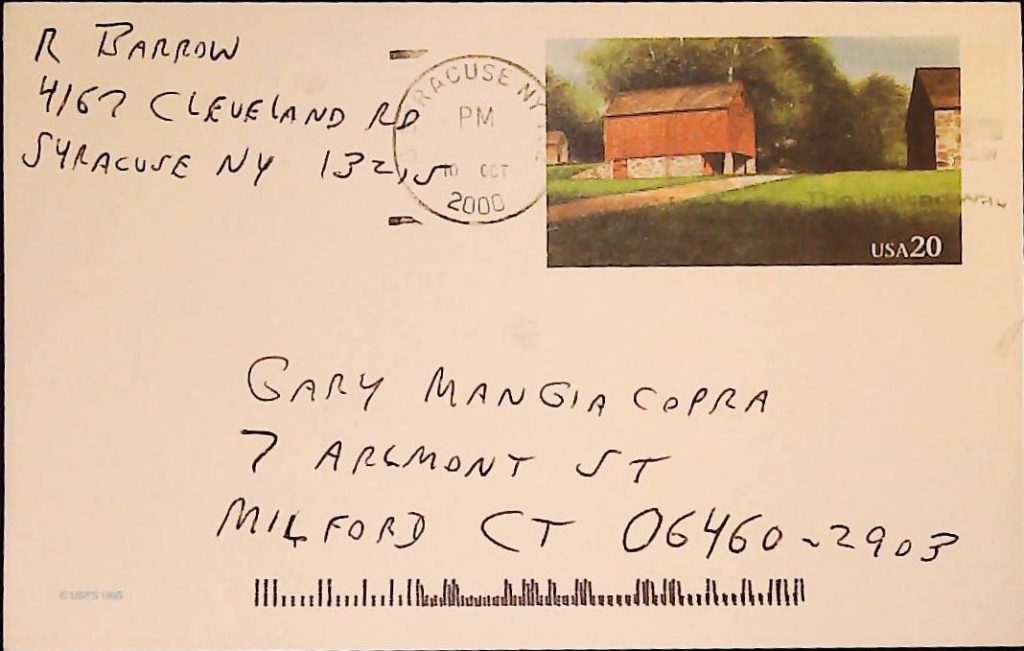 R BARROW
4167 CLEVELAND RD
SYRACUSE NY 13215
SYRACUSE NY
PM
10 OCT
2000
USA20
GARY MANGIACOPRA
7 ARLMONT ST
MILFORD CT 06460-2903
© USPS 1995